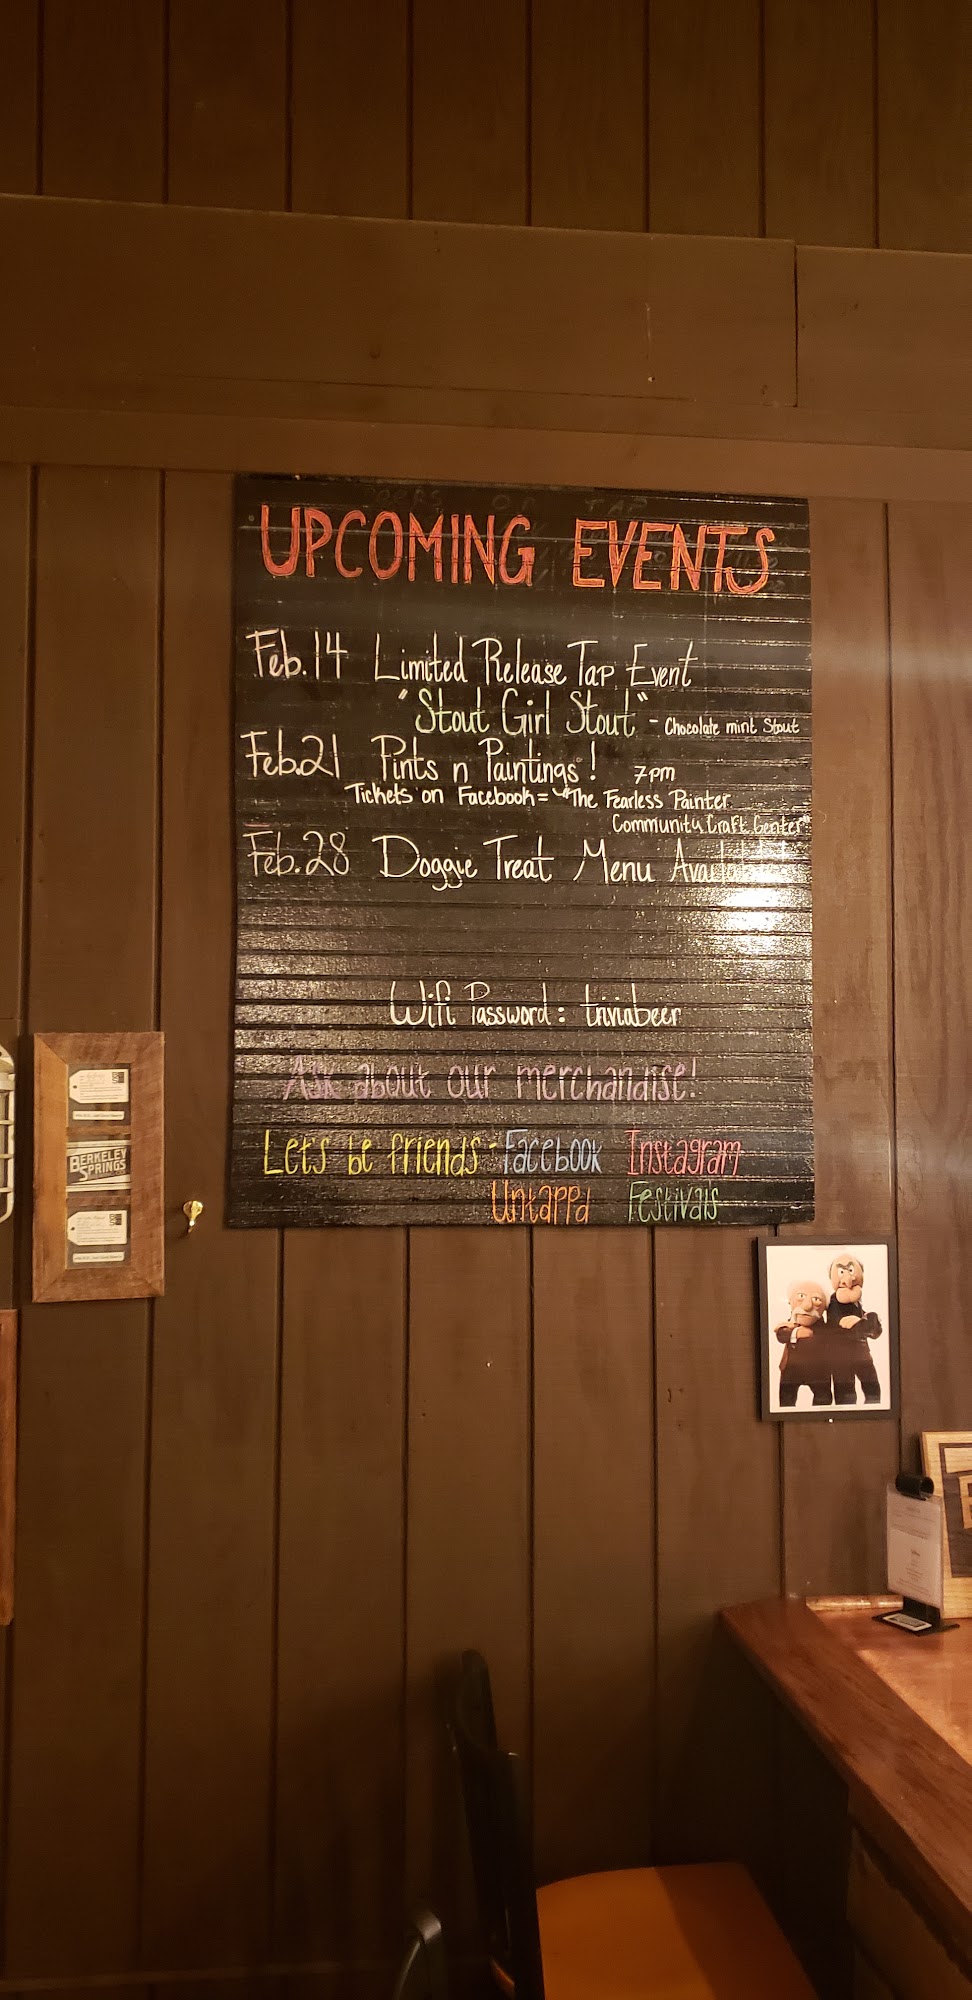 UPCOMING EVENTS
Feb. 14 Limited Release Tap Event
"Stout Girl Stout" - Chocolate mint Stout
Feb. 21 Pints n Paintings! 7pm
Tickets on Facebook = "The Fearless Painter
Community Craft Center"
Feb. 28 Doggie Treat Menu
Wifi Password: triviabeer
Ask about our merchandise!
Let's be friends - Facebook Instagram
Untappd Festivals
BERKELEY
SPRINGS